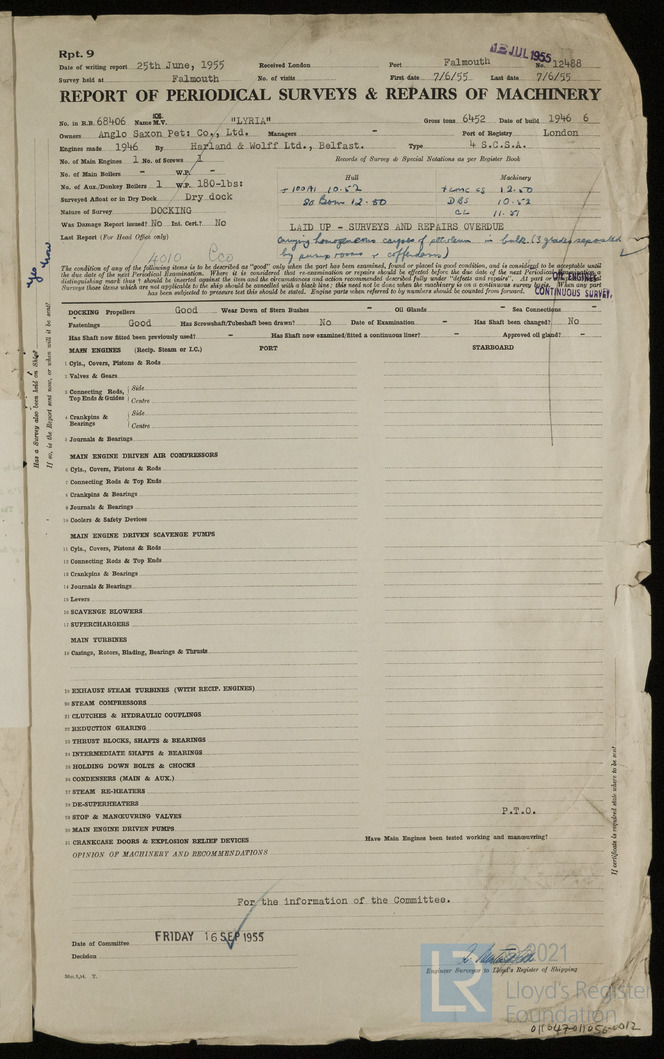 Rpt. 9
12 JUL 1955
Date of writing report 25th June, 1955 Received London Port Falmouth No. 12488
Survey held at Falmouth No. of visits First date 7/6/55 Last date 7/6/55
REPORT OF PERIODICAL SURVEYS & REPAIRS OF MACHINERY
No. in R.B. 68406 Name M.V. "LYRIA" Gross tons 6452 Date of build 1946 6
Owners Anglo Saxon Pet: Co., Ltd. Managers - Port of Registry London
Engines made 1946 By Harland & Wolff Ltd., Belfast. Type 4 S.C.S.A.
No. of Main Engines 1 No. of Screws 1 Records of Survey & Special Notations as per Register Book
No. of Main Boilers - W.P. - Hull Machinery
No. of Aux./Donkey Boilers 1 W.P. 180-lbs: +100A1 10.52 12.50
Surveyed Afloat or in Dry Dock Dry dock 12.50 DBS 10.52
Nature of Survey DOCKING CL 11.51
Was Damage Report issued? No Int. Cert.? No LAID UP - SURVEYS AND REPAIRS OVERDUE
Last Report (For Head Office only) carrying homogeneous cargoes of petroleum in bulk. (3 grades separated
by pump rooms & cofferdams)
The condition of any of the following items is to be described as "good" only when the part has been examined, found or placed in good condition, and is considered to be acceptable until
the due date of the next Periodical Examination. Where it is considered that re-examination or repairs should be effected before the due date of the next Periodical
distinguishing mark thus † should be inserted against the item and the circumstances and action recommended described fully under "defects and repairs".
Surveys those items which are not applicable to the ship should be cancelled with a black line; this need not be done when the machinery is on a continuous survey basis. When any part
has been subjected to pressure test this should be stated. Engine parts when referred to by numbers should be counted from forward.
OIL ENGINES
CONTINUOUS SURVEY.
DOCKING Propellers Good Wear Down of Stern Bushes - Oil Glands - Sea Connections -
Fastenings Good Has Screwshaft/Tubeshaft been drawn? No Date of Examination - Has Shaft been changed? No
Has Shaft now fitted been previously used? - Has Shaft now examined/fitted a continuous liner? - Approved oil gland? -
MAIN ENGINES (Recip. Steam or I.C.) PORT STARBOARD
1 Cyls., Covers, Pistons & Rods
2 Valves & Gears
3 Connecting Rods, Top Ends & Guides Side
Centre
4 Crankpins & Bearings Side
Centre
5 Journals & Bearings
MAIN ENGINE DRIVEN AIR COMPRESSORS
6 Cyls., Covers, Pistons & Rods
7 Connecting Rods & Top Ends
8 Crankpins & Bearings
9 Journals & Bearings
10 Coolers & Safety Devices
MAIN ENGINE DRIVEN SCAVENGE PUMPS
11 Cyls., Covers, Pistons & Rods
12 Connecting Rods & Top Ends
13 Crankpins & Bearings
14 Journals & Bearings
15 Levers
16 SCAVENGE BLOWERS
17 SUPERCHARGERS
MAIN TURBINES
18 Casings, Rotors, Blading, Bearings & Thrusts
19 EXHAUST STEAM TURBINES (WITH RECIP. ENGINES)
20 STEAM COMPRESSORS
21 CLUTCHES & HYDRAULIC COUPLINGS
22 REDUCTION GEARING
23 THRUST BLOCKS, SHAFTS & BEARINGS
24 INTERMEDIATE SHAFTS & BEARINGS
25 HOLDING DOWN BOLTS & CHOCKS
26 CONDENSERS (MAIN & AUX.)
27 STEAM RE-HEATERS
28 DE-SUPERHEATERS
29 STOP & MANŒUVRING VALVES P.T.O.
30 MAIN ENGINE DRIVEN PUMPS
31 CRANKCASE DOORS & EXPLOSION RELIEF DEVICES Have Main Engines been tested working and manœuvring?
OPINION OF MACHINERY AND RECOMMENDATIONS
For the information of the Committee.
Date of Committee FRIDAY 16 SEP 1955
Decision
Engineer Surveyor to Lloyd's Register of Shipping
Has a Survey also been held on Ship?
If so, is the Report sent now, or when will it be sent?
If certificate is required state where to be sent
© 2021
LR
Lloyd's Register
Foundation
011047-011056-0012